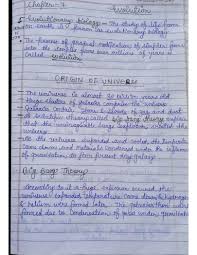 Chapter - 7 Evolution
Evolutionary biology - The study of life form
on earth is known as evolutionary biology.
The process of gradual modification of simpler form
into the complex form over millions of years is
called evolution
ORIGIN OF UNIVERSE
The universe is almost 20 billion years old
Huge clusters of galaxies comprise the universe
Galaxies contain stars & clouds of gas and dust
theory called big bang theory explains
that the unimaginable huge explosion
As the universe expanded and cooled, the temperature
came down and materials condensed under the influence
of gravitation to form present day galaxy
Big Bang Theory
According to it a huge explosion occured the
universe expanded temperature came down & hydrogen
& helium were formed later. The galaxies then were
formed due to condensation of gases under gravitation